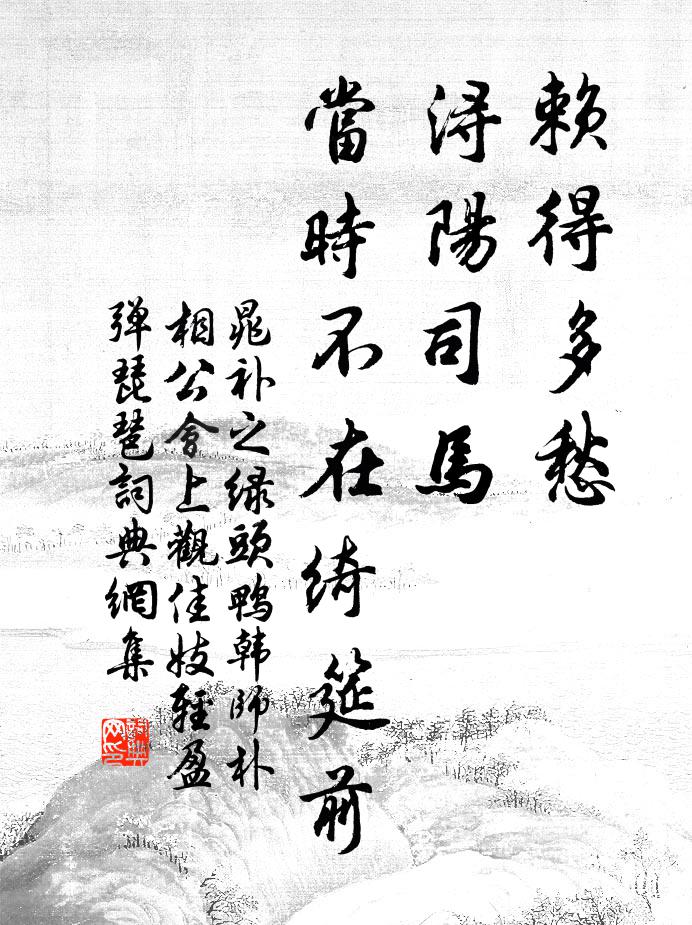 賴得多愁
潯陽司馬
當時不在綺筵前
晁补之绿頭鴨韩师朴
相公會上觀佳妓輕盈
弹琵琶詞典網集